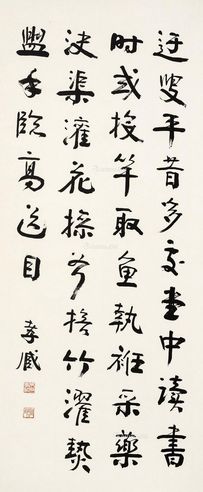 迂叟平昔多處堂中讀書
时或投竿取魚執衽采藥
決渠灌花操斧竹濯熱
盥手臨高送目
孝臧